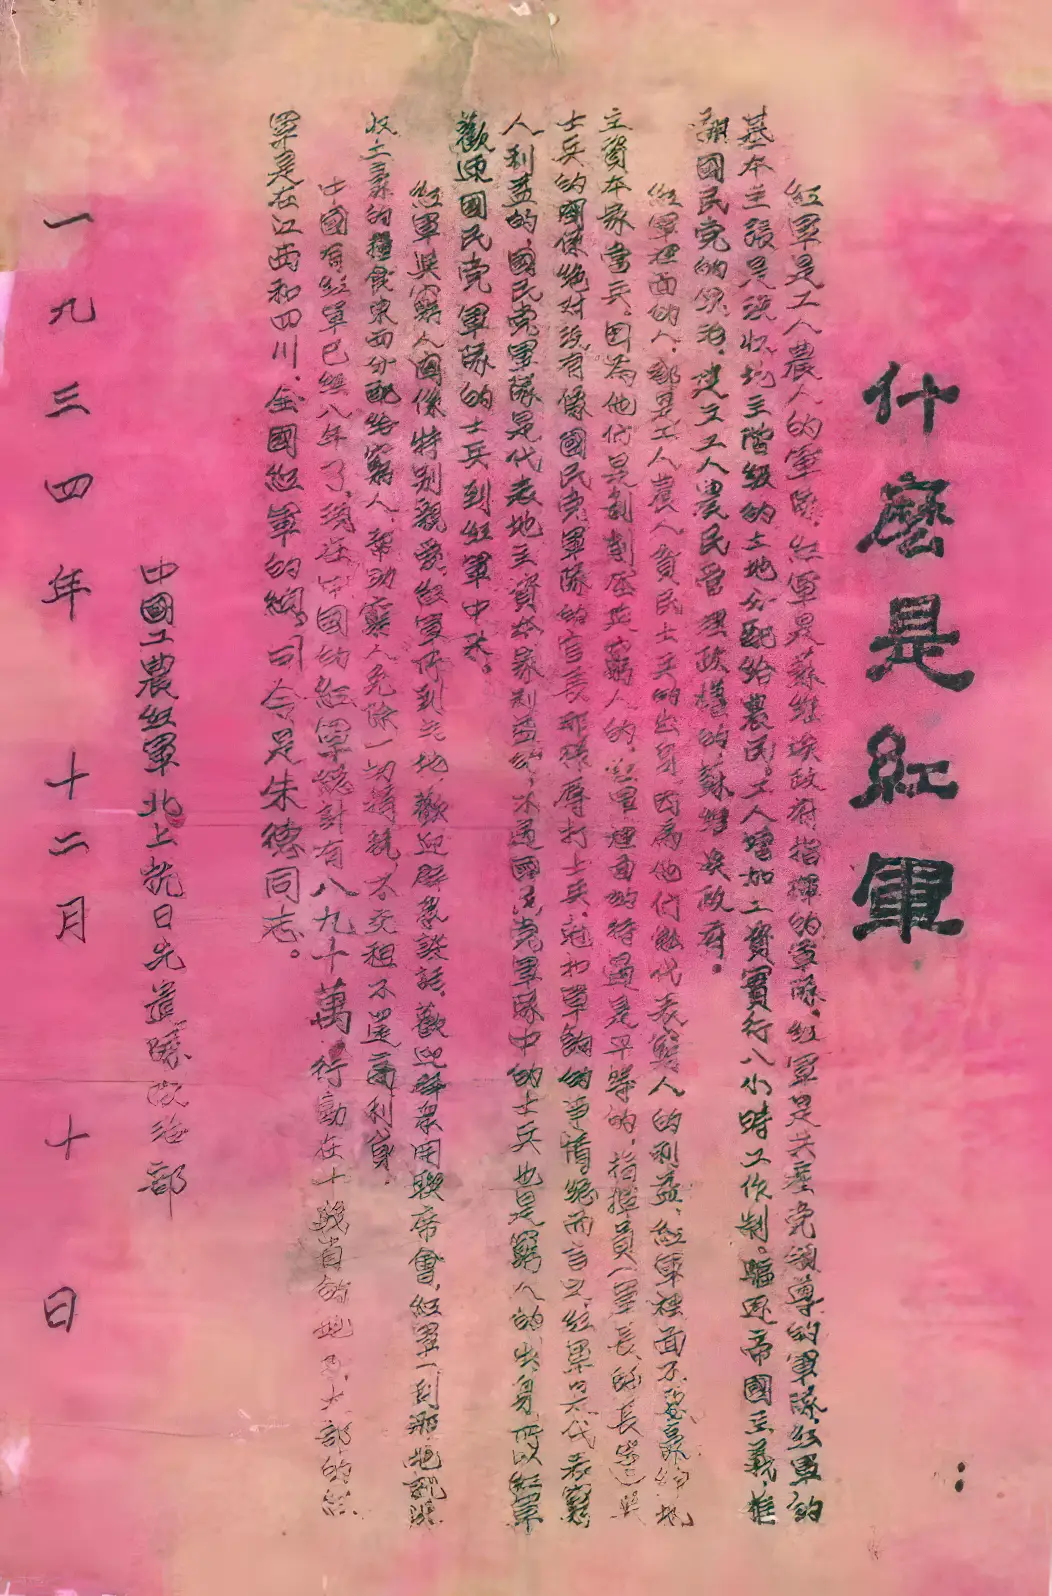 什麽是紅軍
：
紅軍是工人農人的軍隊，紅軍是蘇維埃政府指揮的軍隊，紅軍是共產党領導的軍隊，紅軍的
基本主張是沒收地主階級的土地分配給農民。工人增加工資實行八小時工作制。驅逐帝國主義，推
翻國民党的統治，建立工人農民管理政權的，蘇維埃政府。
紅軍裡面的人，都是工人農人貧民士兵的出身，因為他们能代表窮人的利益，紅軍裡面不要豪紳地
主資本家當兵，因為他们是剝削压迫窮人的，紅軍裡面的待遇是平等的，指揮員（軍長、師長等）與
士兵的關係絕对沒有像國民党軍隊的官長那樣辱打士兵，尅扣軍餉的事情。總而言之，紅軍是代表窮
人利益的，國民党軍隊是代表地主資本家利益的，不過國民党軍隊中的士兵也是窮人的出身，所以紅軍
歡迎國民党軍隊的士兵到紅軍中來。
紅軍與窮人關係特别親愛，紅軍所到之地，歡迎群眾談話，歡迎群眾開聯席會，紅軍一到那地就沒
收土豪的糧食東西分配給窮人，幫助窮人免除一切捐稅，不交租不還高利貸，
中國有紅軍已經八年了，現在中國的紅軍總計有八九十萬，行動在十幾省的地
軍是在江西和四川，全國紅軍的總司令是朱德同志。
中國工農紅軍北上抗日先遣隊政治部
一九三四年十二月十日